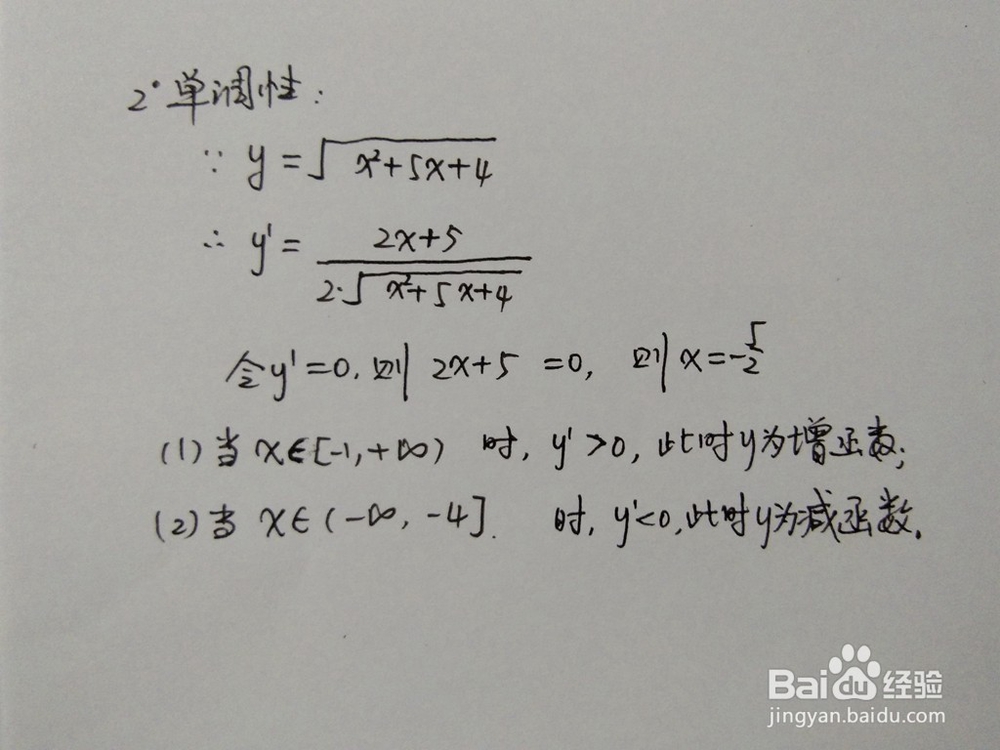 2° 单调性:
∵ y = √(x²+5x+4)
∴ y' = (2x+5)/(2·√(x²+5x+4))
令y'=0, 则 2x+5 =0, 则 x=-5/2
(1) 当 x∈[-1,+∞) 时, y'>0, 此时y为增函数;
(2) 当 x∈(-∞, -4]. 时, y'<0,此时y为减函数.
Baidu经验
jingyan.baidu.com